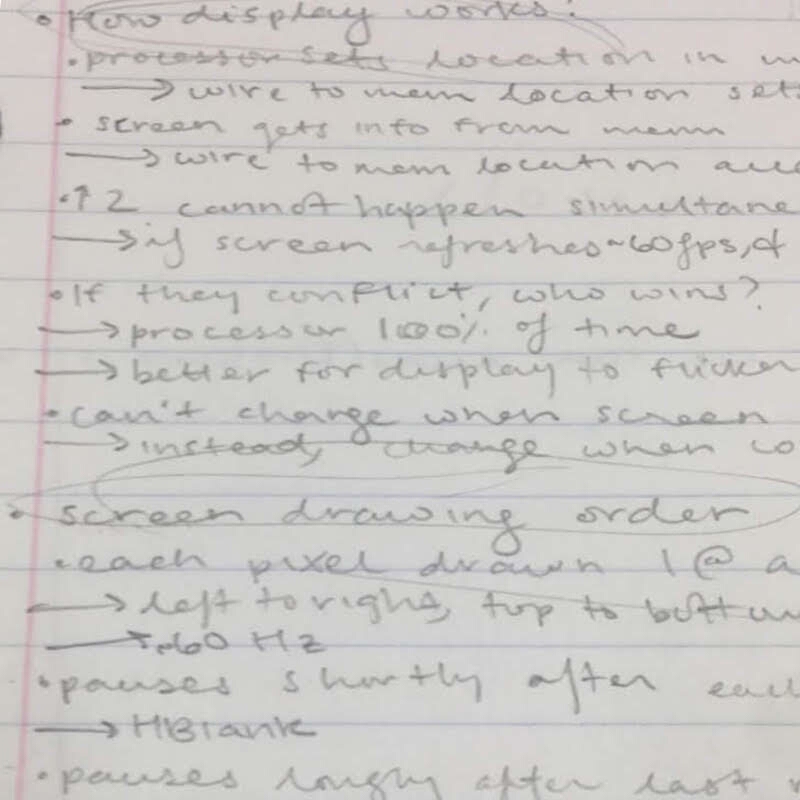 • How display works:
• processor sets location in
→ wire to mem location sets
• screen gets info from mem
→ wire to mem location
• ↑ 2 cannot happen simultane
→ if screen refreshes ~60fps,
• If they conflict, who wins?
→ processor 100% of time
→ better for display to flicker
• can't change when screen
→ instead, change when
• screen drawing order
• each pixel drawn 1 @ a
→ left to right, top to bottom
→ ~60 Hz
• pauses shortly after each
→ HBlank
• pauses longly after last